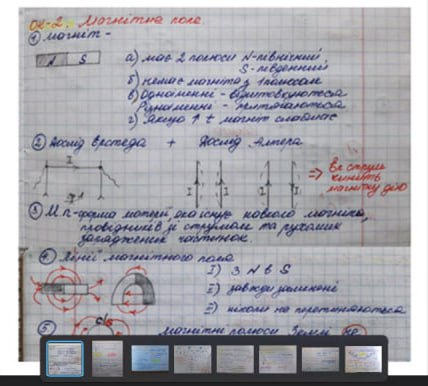 ОК-2. Магнітне поле
① Магніт -
N S а) має 2 полюси N-північний
S-південний
б) немає магніта з 1 полюсом
в) Однойменні - відштовхуються
Різнойменні - притягаються
г) Якщо ↑ t магніт слабшає
② Дослід Ерстеда + Дослід Ампера
I I I I I
=> Ел. струм чинить магнітну дію
③ М.п-форма матерії, яка існує навколо магніта,
провідників зі струмом та рухомих
заряджених частинок.
④ Лінії магнітного поля
I) З N в S
II) завжди замкнені
III) ніколи не перетинаються
⑤ Магнітні полюси Землі не